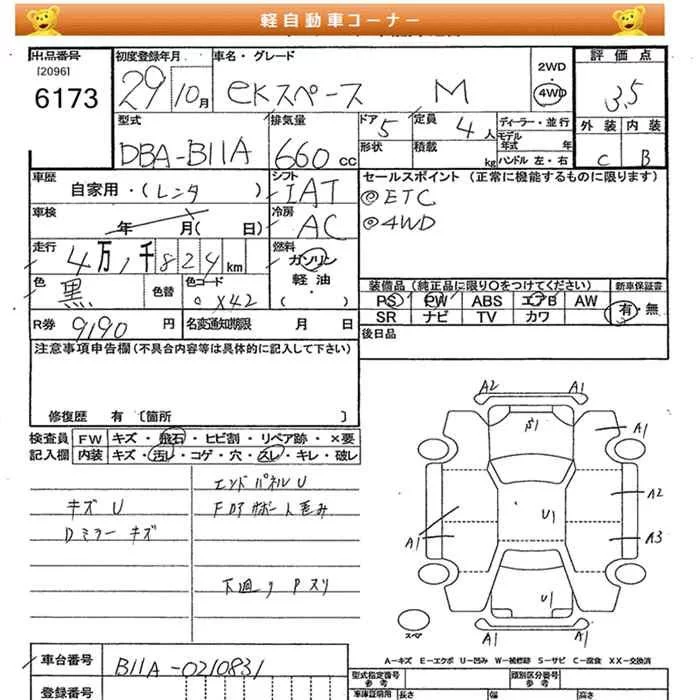 軽自動車コーナー
出品番号 初度登録年月 車名・グレード 2WD・4WD 評価点
[2096]
6173 29 10月 eKスペース M 3.5
型式 排気量 ドア 5 定員 4人 ディーラー・並行 外装 内装
DBA-B11A 660cc 形状 積載 kg モデル年式 年 ハンドル 左・右 C B
車歴 自家用・(レンタ) シフト IAT セールスポイント (正常に機能するものに限ります)
◎ETC
車検 年 月( 日) 冷房 AC ◎4WD
走行 4万1千824km 燃料 ガソリン・軽油
色 黒 色替 色コード X42 装備品 (純正品に限り○をつけてください) 新車保証書
PS PW ABS エアB AW 有・無
SR ナビ TV カワ
R券 9190円 名変通知期限 月 日 後日品
注意事項申告欄(不具合内容等は具体的に記入して下さい)
修復歴 有 〔箇所 〕
検査員記入欄 FW キズ・飛石・ヒビ割・リペア跡・×要
内装 キズ・汚レ・コゲ・穴・スレ・キレ・破レ
エンドパネルU
キズ U
Dミラーキズ
下廻り Pスリ
A2 A1
A1
A2
U1
A1 A3
U1
スペア
A1 A1
A-キズ E-エクボ U-凹み W-補修跡 S-サビ C-腐食 XX-交換済
車台番号 B11A-0210831
型式指定番号 参考 類別区分番号 参考
登録番号 車庫証明用 長さ 幅 高さ